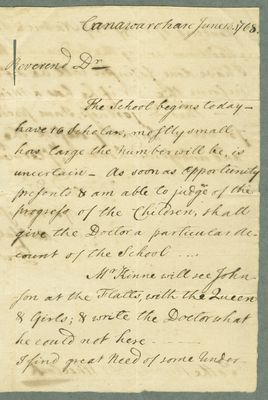 Canawarohare June 10. 1768.
Reverend Dr
The School begins today—
have 16 Scholars, mostly small
how large the number will be, is
uncertain— As soon as Opportunity
presents & am able to judge of the
progress of the Children, shall
give the Doctor a particular Ac-
count of the School ....
Mr Kinne will see John-
son at the Flatts, with the Queen
& Girls; & write the Doctor what
he could not here
I find great Need of some Under-